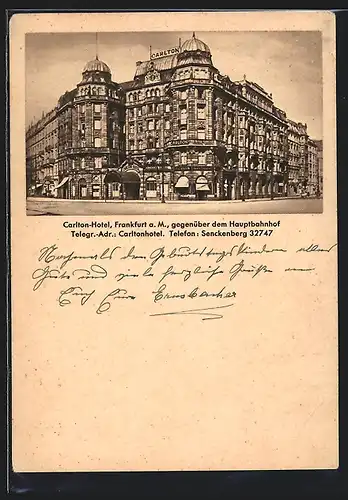 CARLTON
Carlton-Hotel, Frankfurt a. M., gegenüber dem Hauptbahnhof
Telegr.-Adr.: Carltonhotel. Telefon: Senckenberg 32747
Nochmals den Geburtstagskindern alles
Gute und viele herzliche Grüße